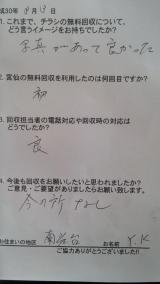 成30年 9月19日
1. これまで、チラシの無料回収について、
どう言うイメージをお持ちでしたか?
写真があって良かった
2. 宮仙の無料回収を利用したのは何回目ですか?
初
3. 回収担当者の電話対応や回収時の対応は
どうでしたか?
良
4. 今後も回収をお願いしたいと思われましたか?
ご意見・ご要望がありましたらお願い致します。
今の所なし
お住まいの地区 南仙台 お名前 Y.K
ご協力ありがとうございました!!